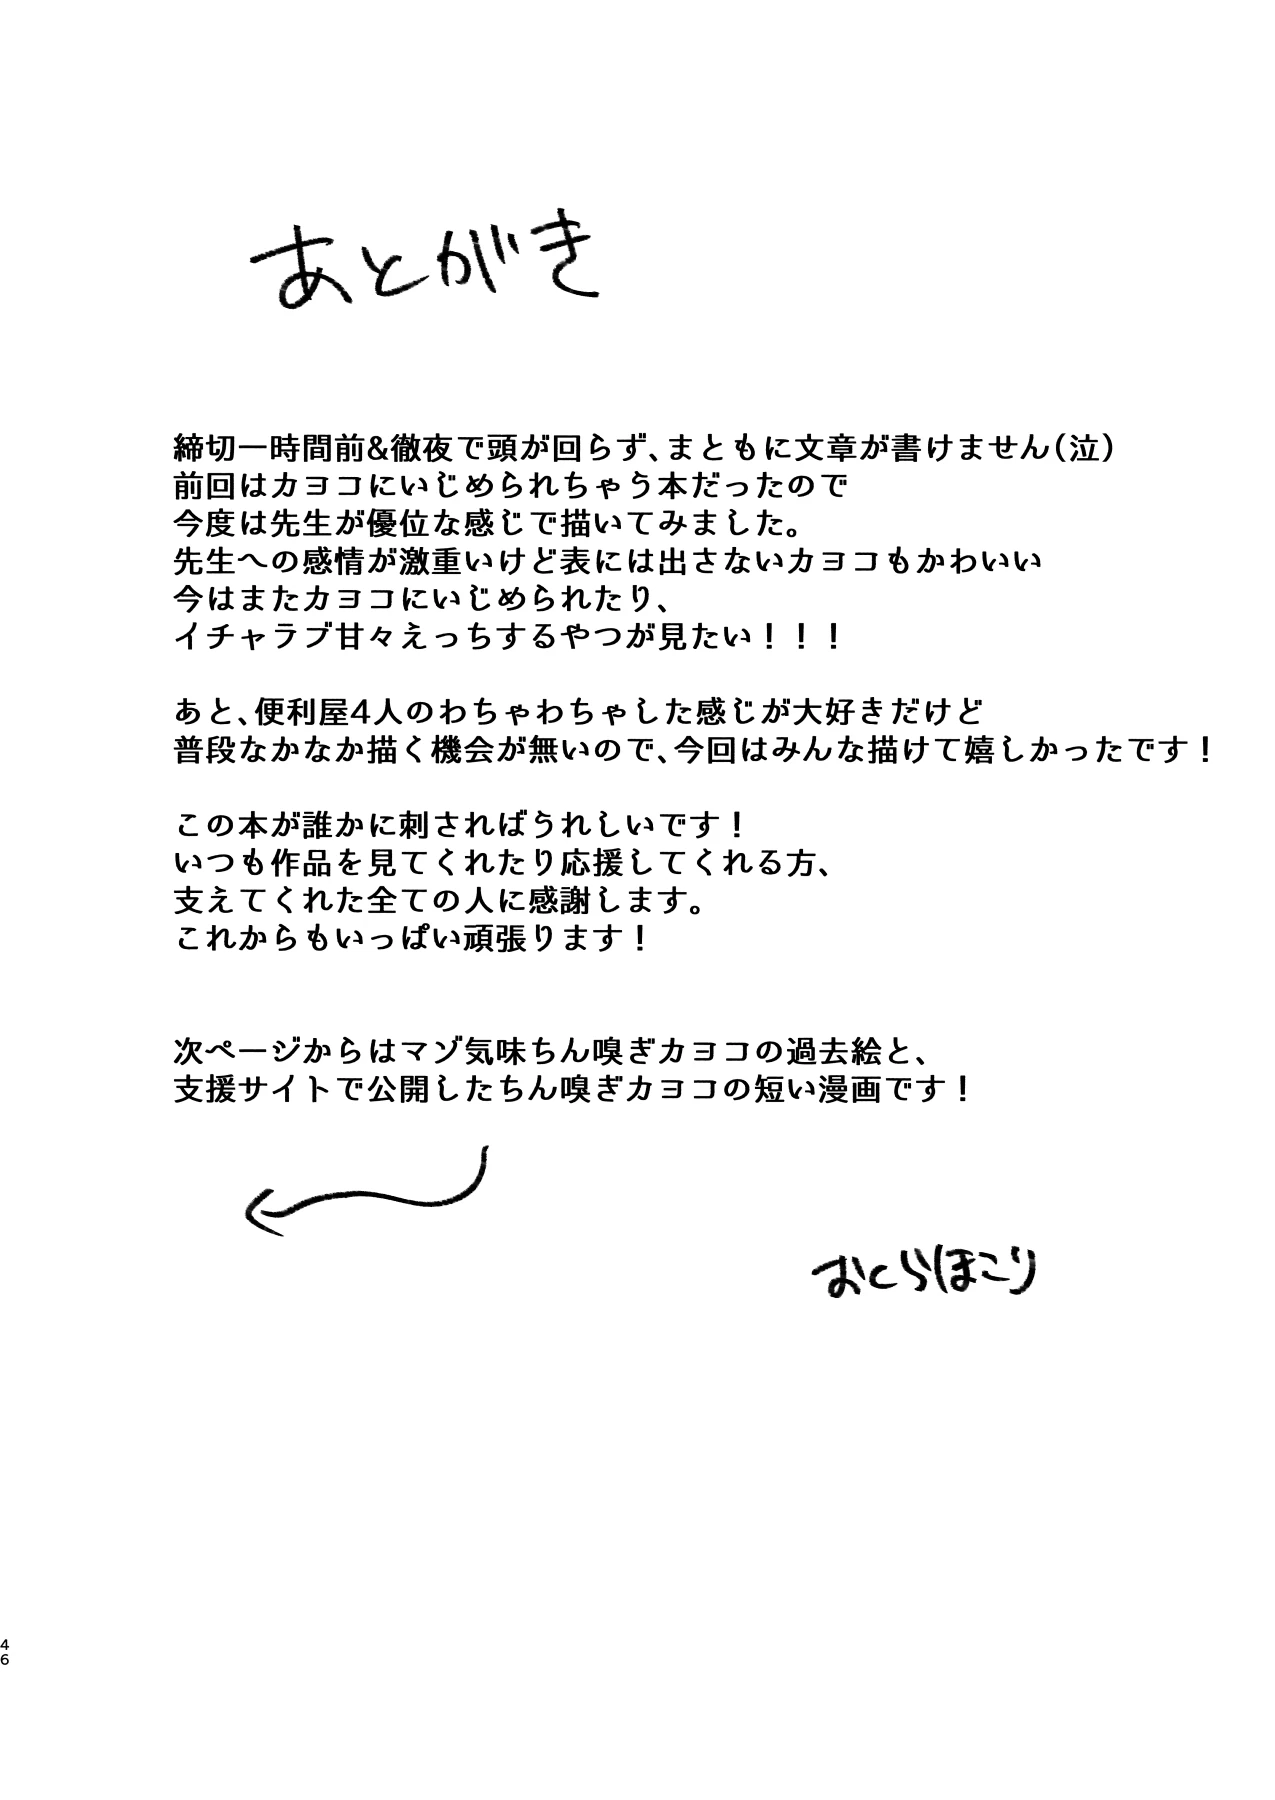 あとがき
締切一時間前&徹夜で頭が回らず、まともに文章が書けません(泣)
前回はカヨコにいじめられちゃう本だったので
今度は先生が優位な感じで描いてみました。
先生への感情が激重いけど表には出さないカヨコもかわいい
今はまたカヨコにいじめられたり、
イチャラブ甘々えっちするやつが見たい！！！
あと、便利屋4人のわちゃわちゃした感じが大好きだけど
普段なかなか描く機会が無いので、今回はみんな描けて嬉しかったです！
この本が誰かに刺さればうれしいです！
いつも作品を見てくれたり応援してくれる方、
支えてくれた全ての人に感謝します。
これからもいっぱい頑張ります！
次ページからはマゾ気味ちん嗅ぎカヨコの過去絵と、
支援サイトで公開したちん嗅ぎカヨコの短い漫画です！
おとらほこり
46